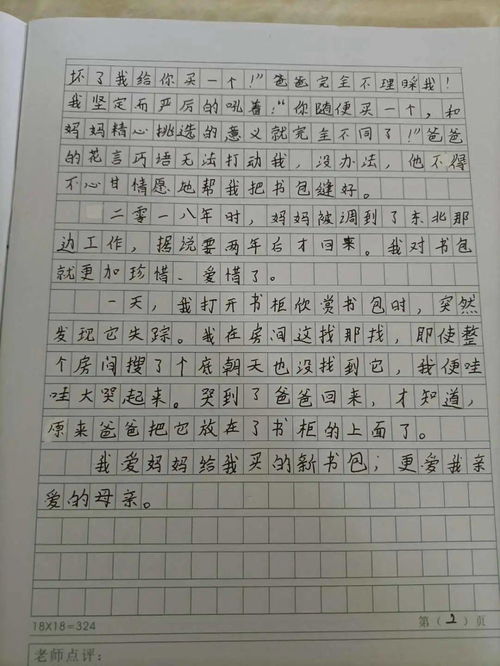 坏了我给你买一个!”爸爸完全不理睬我!
我坚定而严厉的吼着:“你随便买一个,和
妈妈精心挑选的意义就完全不同了!”爸爸
的花言巧语无法打动我,没办法,他不得
不心甘情愿地帮我把书包缝好。
二零一八年时,妈妈被调到了东北那
边工作,据说要两年后才回来。我对书包
就更加珍惜、爱惜了。
一天,我打开书柜欣赏书包时,突然
发现它失踪。我在房间这找那找,即使整
个房间搜了个底朝天也没找到它,我便哇
哇大哭起来。哭到了爸爸回来,才知道,
原来爸爸把它放在了书柜的上面了。
我爱妈妈给我买的新书包;更爱我亲
爱的母亲。
18X18=324 第(2)页
老师点评: